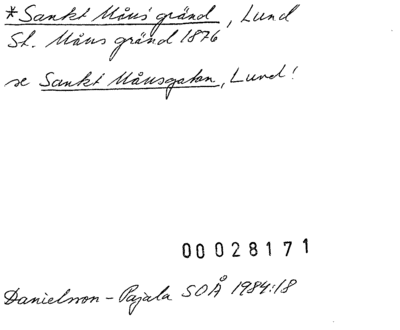 *Sankt Måns' gränd, Lund
St. Måns gränd 1876
se Sankt Månsgatan, Lund!
00028171
Danielsson - Pajala SOÅ 1984:18